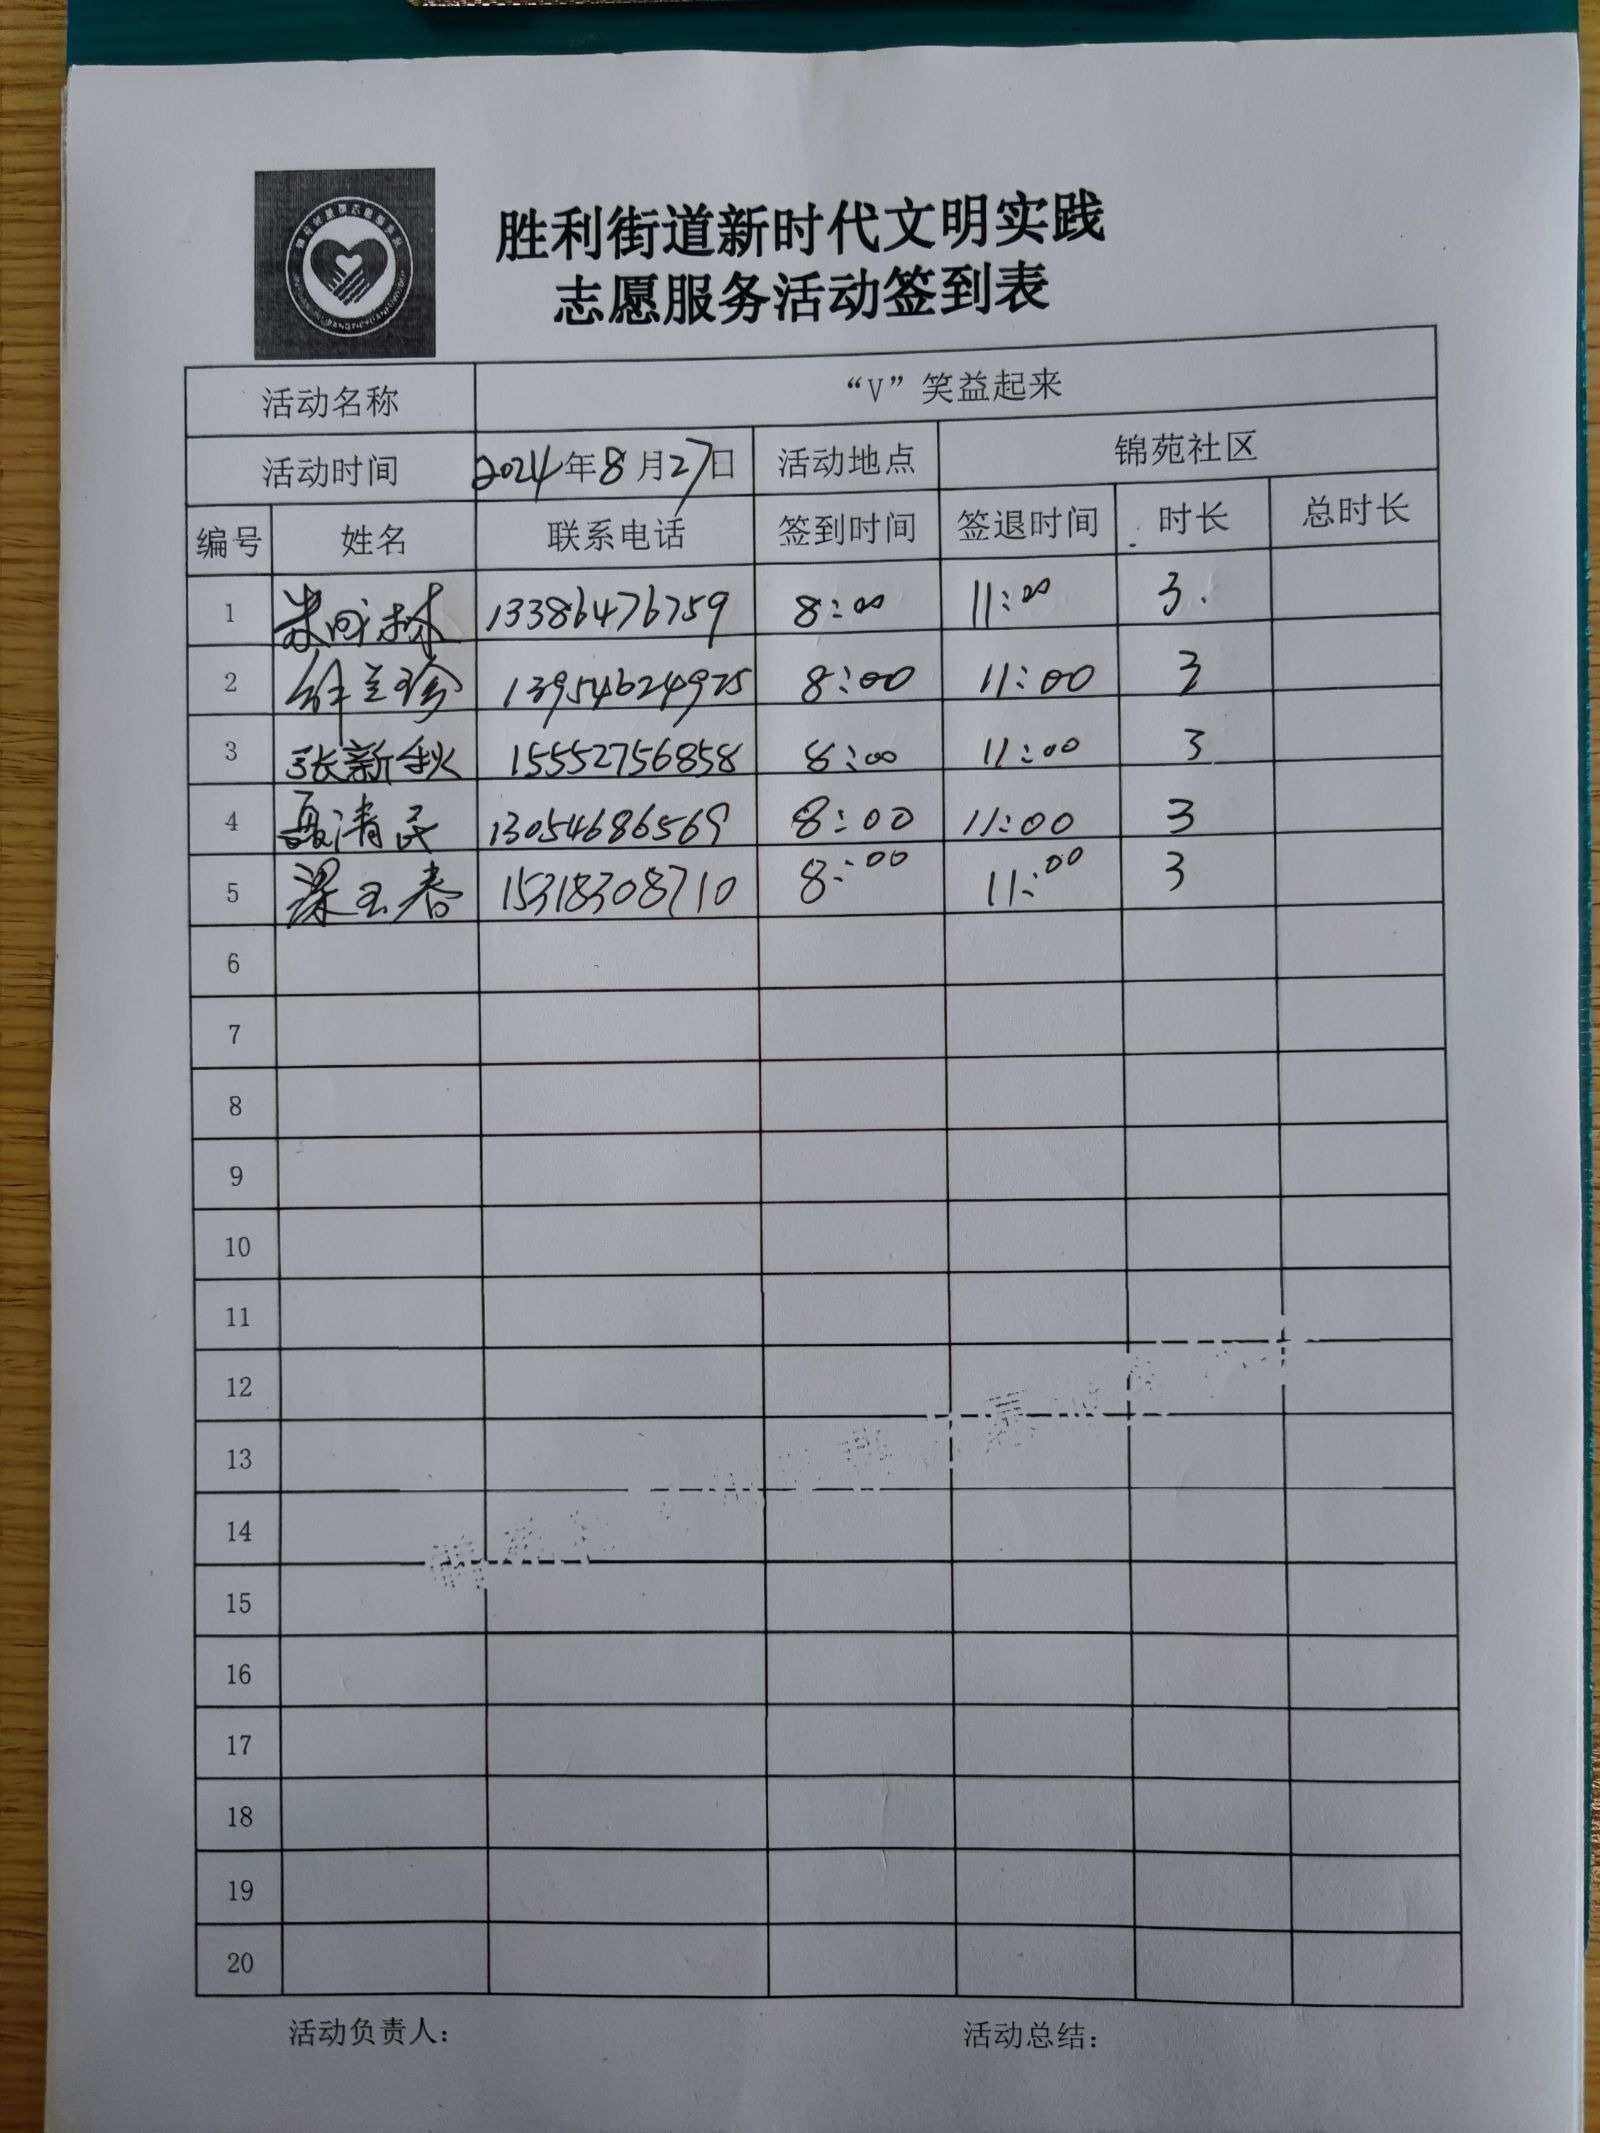 胜利街道新时代文明实践
志愿服务活动签到表
活动名称 “V”笑益起来
活动时间 2024年8月27日 活动地点 锦苑社区
编号 姓名 联系电话 签到时间 签退时间 时长 总时长
1 13386476759 8:00 11:00 3.
2 徐兰珍 13954624925 8:00 11:00 3
3 张新秋 15552756858 8:00 11:00 3
4 聂清民 13054686569 8:00 11:00 3
5 梁玉春 15318308710 8:00 11:00 3
6
7
8
9
10
11
12
13
14
15
16
17
18
19
20
活动负责人： 活动总结：